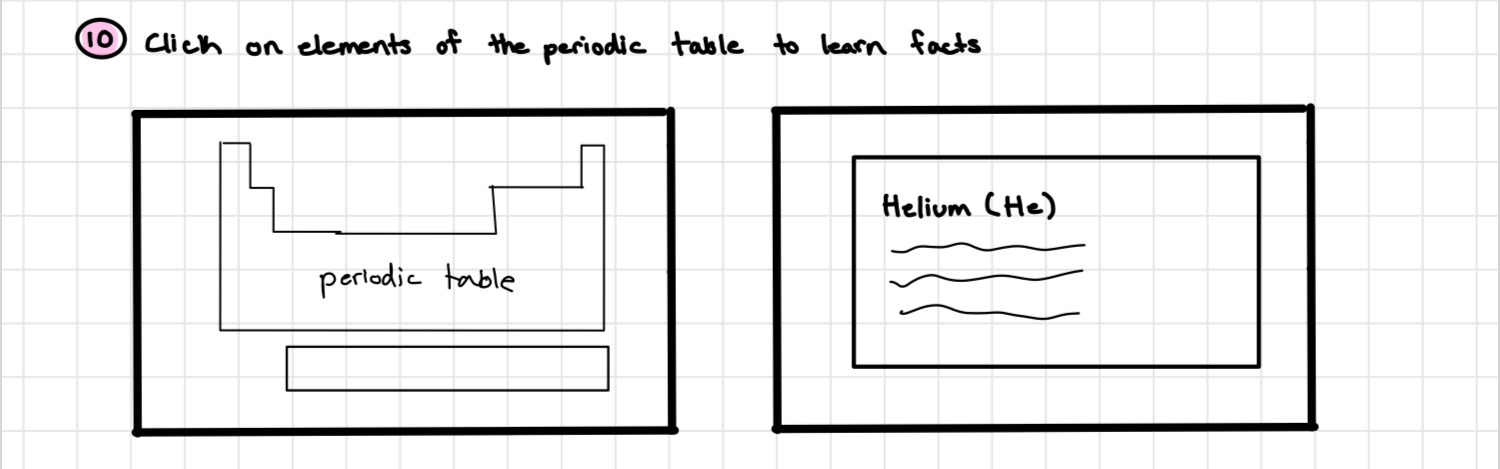 10 Click on elements of the periodic table to learn facts
periodic table
Helium (He)